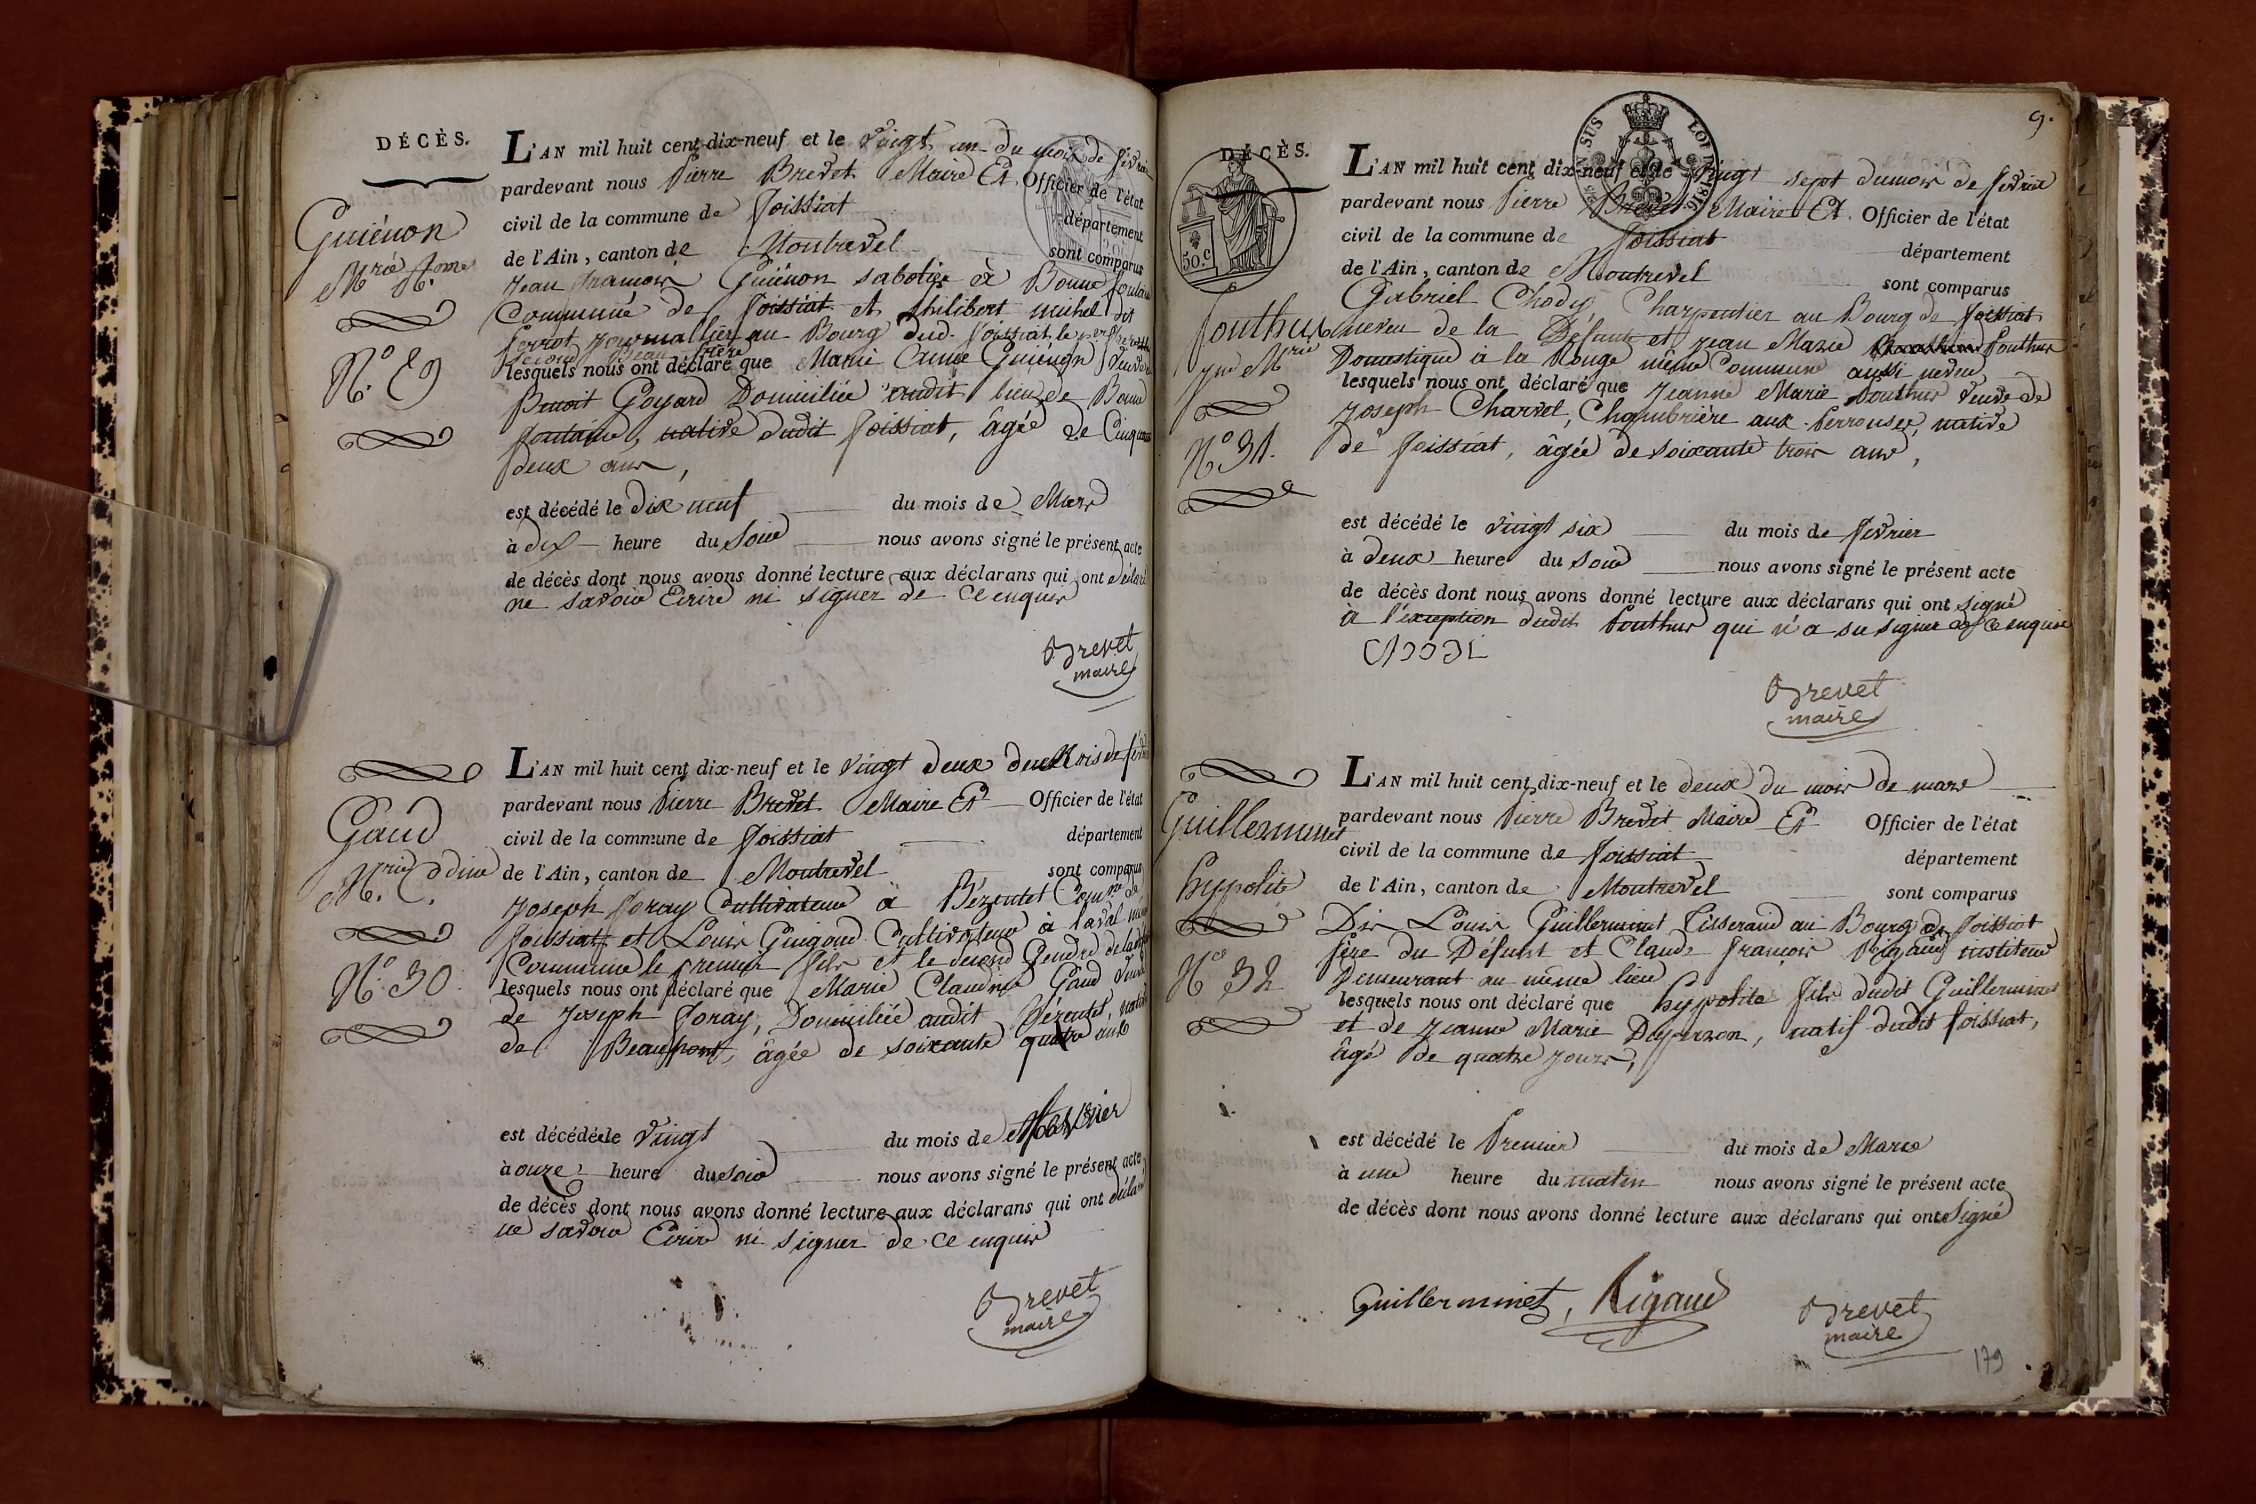 DÉCÈS.
L'AN mil huit cent dix-neuf et le vingt un du mois de février
pardevant nous Pierre Brevet Maire Et Officier de l'état
civil de la commune de foissiat département
de l'Ain, canton de Montrevel sont comparus
Guiénon
Mrie
Jean françois Guiénon sabotier à Bonne fontaine
Commune de foissiat et philibert michel dit
perrot journallier au Bourg dud. foissiat, le per
second Beau frère
lesquels nous ont déclaré que Marie Anne Guiénon veuve
N.° 29
Benoit Goyard Domiciliée audit lieu de Bonne
fontaine, native dudit foissiat, âgée de Cinquante
deux ans,
est décédé le dix neuf du mois de Mars
à dix heure du Soir nous avons signé le présent acte
de décès dont nous avons donné lecture aux déclarans qui ont déclaré
ne savoir Ecrire ni signer de ce enquis
Brevet
maire
L'AN mil huit cent dix-neuf et le vingt deux du Mois de
pardevant nous Pierre Brevet Maire Et Officier de l'état
Gaud
civil de la commune de foissiat département
Mrie Cdine
de l'Ain, canton de Montrevel sont comparus
Joseph foray Cultivateur à Bézentet Comne de
foissiat et Louis Gingoud Cultivateur à laval même
Commune le premier fils et le second Gendre de la
N.° 30.
lesquels nous ont déclaré que Marie Claudine Gaud veuve
de Joseph foray, Domiciliée audit Bézentet, native
de Beaupont, âgée de soixante quatre ans
est décédée le vingt du mois de
à onze heure du soir nous avons signé le présent acte
de décès dont nous avons donné lecture aux déclarans qui ont déclaré
ne savoir Ecrire ni signer de ce enquis
Brevet
maire
9.
DÉCÈS.
L'AN mil huit cent dix-neuf et le vingt sept du mois de février
pardevant nous Pierre Brevet Maire Et Officier de l'état
civil de la commune de foissiat département
de l'Ain, canton de Montrevel sont comparus
50.c
Gabriel Chody, Charpentier au Bourg de foissiat
Pouthus
neveu de la Défunte et Jean Marie Pouthus
Jne Mrie
Domestique à la Rouge même Commune aussi neveu
lesquels nous ont déclaré que Jeanne Marie Pouthus veuve de
Joseph Charvet, Chambrière aux perrouses, native
N.° 31.
de foissiat, âgée de soixante trois ans,
est décédé le vingt six du mois de février
à deux heure du soir nous avons signé le présent acte
de décès dont nous avons donné lecture aux déclarans qui ont signé
à l'exception dudit Pouthus qui n'a su signer de ce enquis
Brevet
maire
L'AN mil huit cent dix-neuf et le deux du mois de mars
pardevant nous Pierre Brevet Maire Et Officier de l'état
Guillerminet
civil de la commune de foissiat département
hypolite
de l'Ain, canton de Montrevel sont comparus
Louis Guillerminet Tisserand au Bourg de foissiat
père du Défunt et Claude françois Rigaud instituteur
Demeurant au même lieu
N° 32
lesquels nous ont déclaré que hypolite fils dudit Guillerminet
et de Jeanne Marie natif dudit foissiat,
âgé de quatre jours,
est décédé le Premier du mois de Mars
à une heure du matin nous avons signé le présent acte
de décès dont nous avons donné lecture aux déclarans qui ont Signé
Guillerminet, Rigaud
Brevet
maire
179